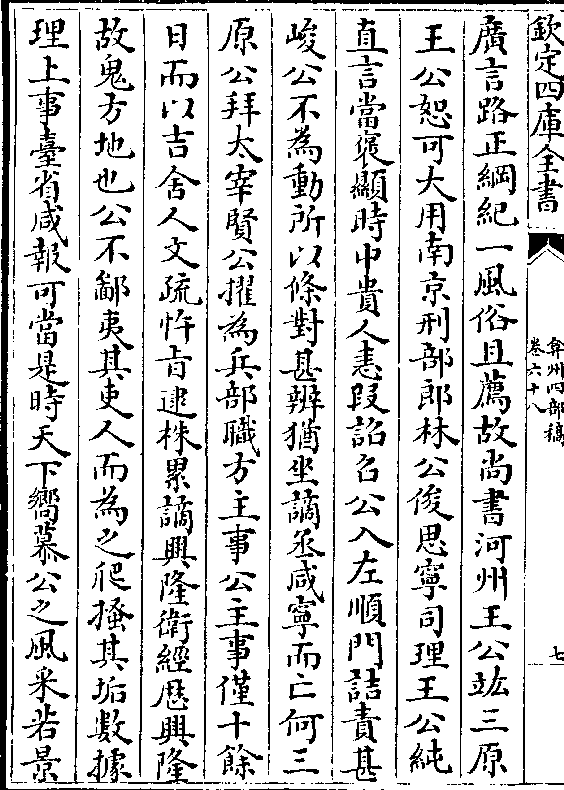 欽定四庫全書
弇州四部稿
卷六十八
七
廣言路正綱紀一風俗且薦故尚書河州王公竑三原
王公恕可大用南京刑部郎林公俊思寧司理王公純
直言當褒顯時中貴人恚叚詔召公入左順門詰責甚
峻公不為動所以條對甚辨猶坐謫丞咸寧而亡何三
原公拜太宰賢公擢為兵部職方主事公主事僅十餘
日而以吉舍人文疏忤旨逮株累謫興隆衛經歴興隆
故鬼方地也公不鄙夷其吏人而為之爬搔其垢數據
理上事臺省咸報可當是時天下嚮慕公之風采若景